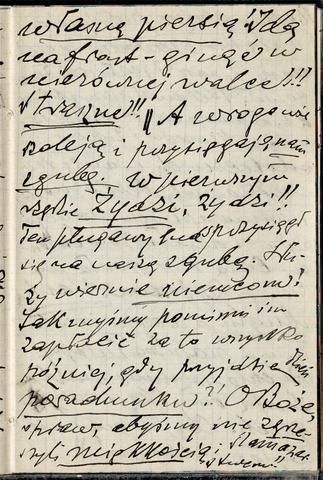 własną piersią! Idą
na front - giną w
nierównej walce!!!
Straszne!! A wrogowie
szaleją i przysięgają nam
zgubę. W pierwszym
rzędzie Żydzi, żydzi!!
Ten plugawy sprzysiągł
się na naszą zgubę. Słu-
ży wiernie niemcom!
Jak my im
zapłacić za to wszystko
później, gdy przyjdzie dzień
porachunku?! O Boże,
spraw, abyśmy nie zgrze-
szyli miękkością;